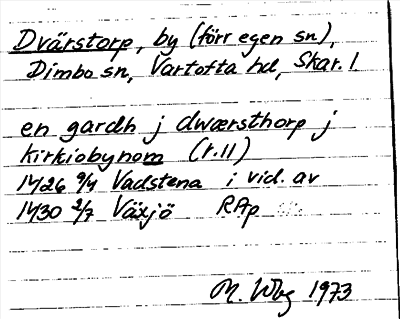 Dvärstorp, by (förr egen sn),
Dimbo sn, Vartofta hd, Skar. l.
en gardh j dwærsthorp j
kirkiobynom (r. 11)
1426 9/4 Vadstena i vid. av
1430 2/7 Växjö RAp
M. Wbg 1973